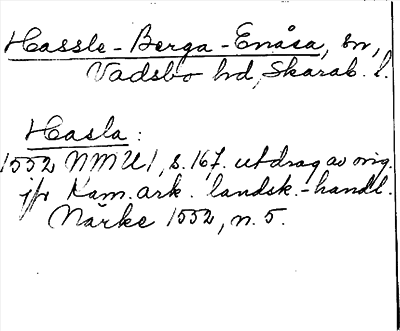 Hassle-Berga-Enåsa, sn,
Vadsbo hd, Skarab. l.
Hasla:
1552 NMU 1, s. 167. utdrag av orig.
jfr Kam. ark. landsk.-handl.
Närke 1552, n. 5.